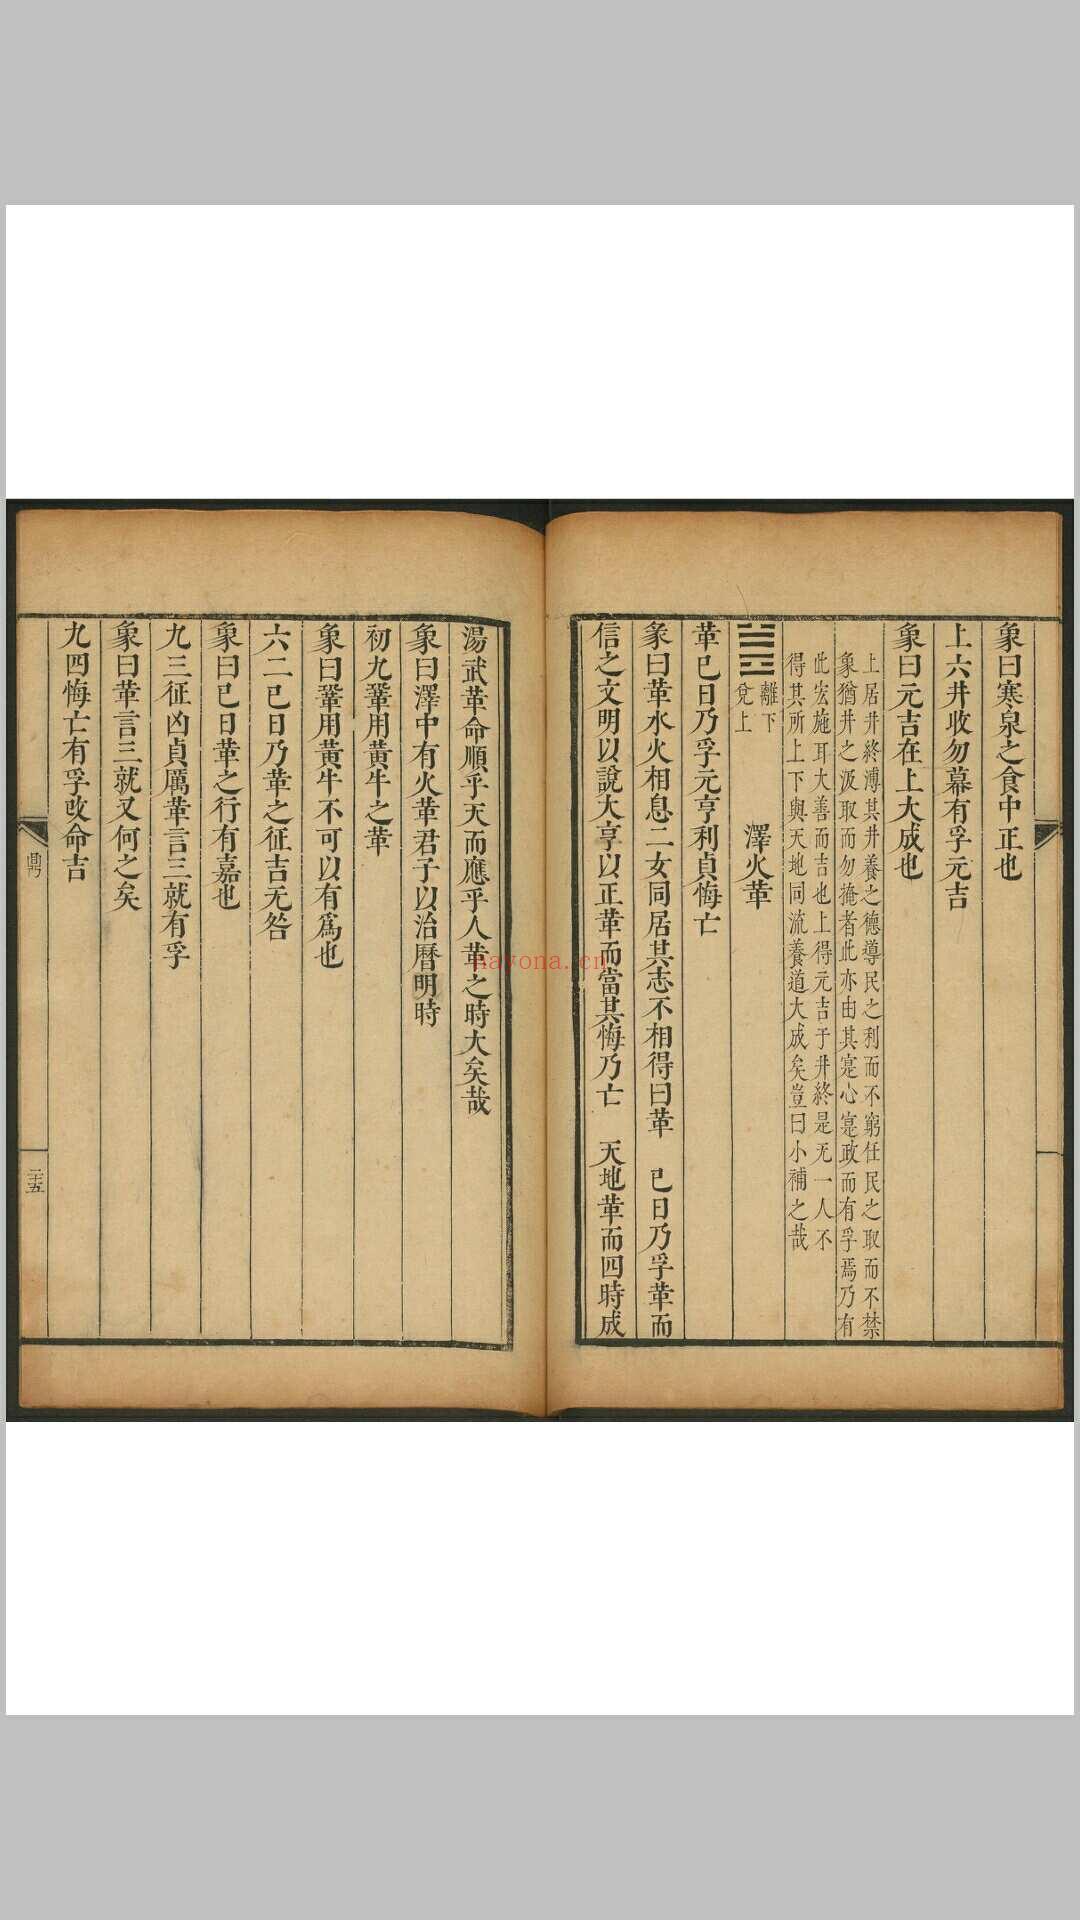 象曰寒泉之食中正也
上六井收勿幕有孚元吉
象曰元吉在上大成也
上居井終溥其井養之德導民之利而不窮任民之取而不禁
象猶井之汲取而勿掩者此亦由其寔心寔政而有孚焉乃有
此宏施耳大善而吉也上得元吉于井終是无一人不
得其所上下與天地同流養道大成矣豈曰小補之哉
離下
兌上
澤火革
革已日乃孚元亨利貞悔亡
彖曰革水火相息二女同居其志不相得曰革 已日乃孚革而
信之文明以說大亨以正革而當其悔乃亡 天地革而四時成
湯武革命順乎天而應乎人革之時大矣哉
象曰澤中有火革君子以治曆明時
初九鞏用黃牛之革
象曰鞏用黃牛不可以有爲也
六二已日乃革之征吉无咎
象曰已日革之行有嘉也
九三征凶貞厲革言三就有孚
象曰革言三就又何之矣
九四悔亡有孚改命吉
三十五
nayona.cn